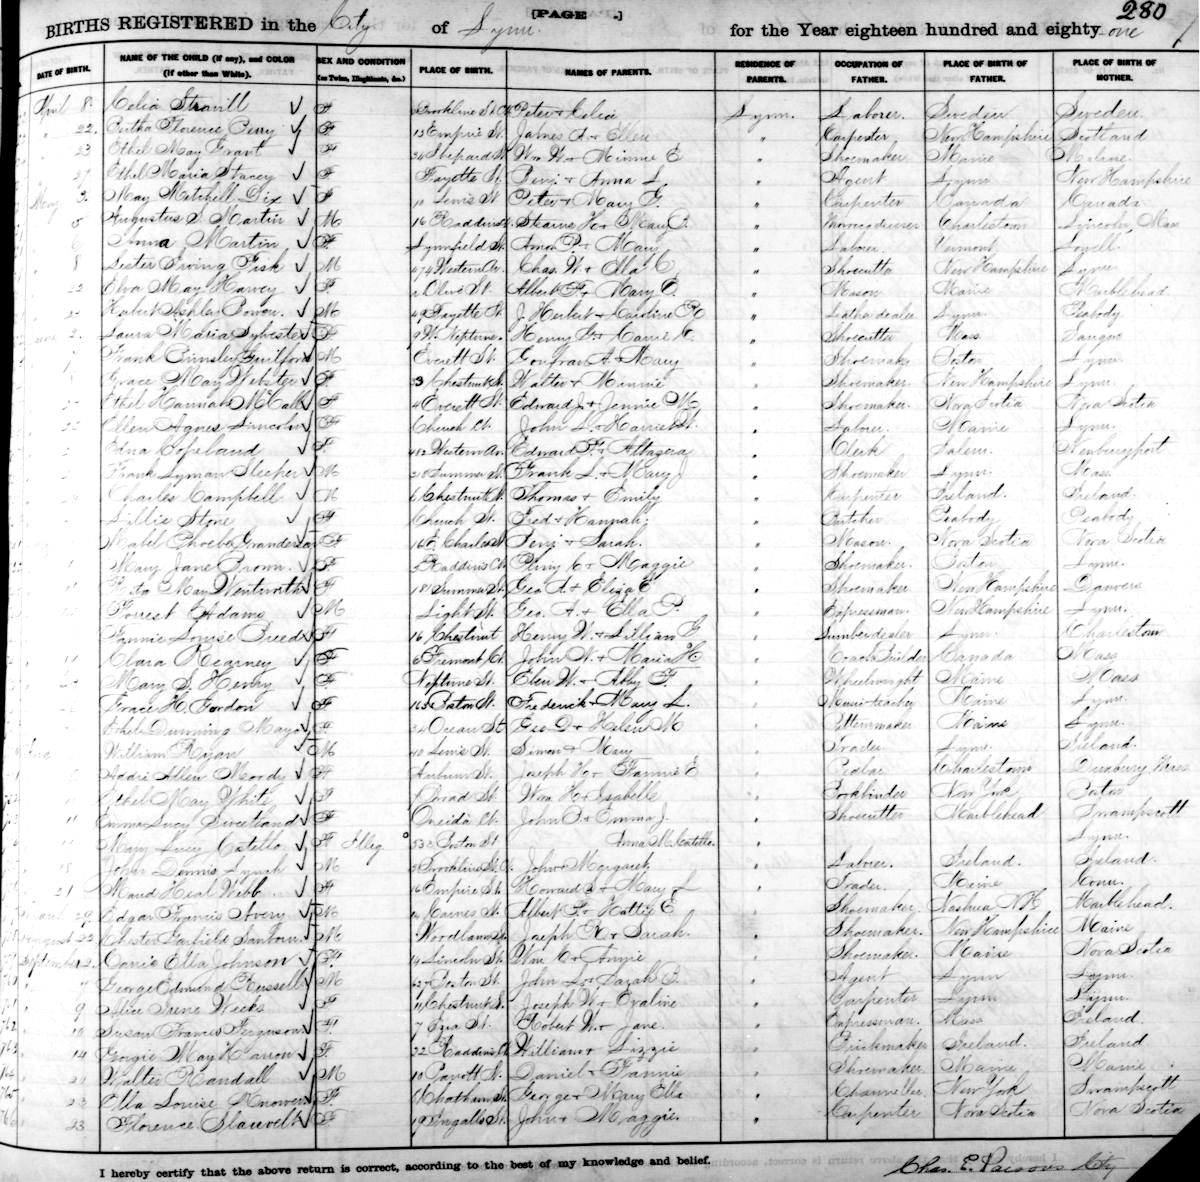 [PAGE .] 280
BIRTHS REGISTERED in the City of Lynn for the Year eighteen hundred and eighty one
DATE OF BIRTH. NAME OF THE CHILD (if any), and COLOR (if other than White). SEX AND CONDITION (as Twins, Illegitimate, &c.) PLACE OF BIRTH. NAMES OF PARENTS. RESIDENCE OF PARENTS. OCCUPATION OF FATHER. PLACE OF BIRTH OF FATHER. PLACE OF BIRTH OF MOTHER.
April 8 Celia F Brookline St Peter & Celia Lynn. Laborer Sweden Sweden
" 22 Bertha Florence Perry F 13 Empire St. James A. & Ellen " Carpenter New Hampshire Scotland
" 23 Ethel May Grant F 24 Shepard St Wm W & Minnie E " Shoemaker Maine
" 27 Ethel Maria Stacey F Fayette St. Benj. & Anna L " Agent Lynn New Hampshire
May 3 May Mitchell Dix F 10 Lewis St Peter & Mary F. " Carpenter Canada Canada
" 5 Augustus S. Martin M 16 Stearns H & Mary " Charlestown Lincoln, Mass
" 6 Anna Martin F Lynnfield St. Amos P. & Mary " Laborer Vermont Lowell
" 8 Lester Irving Fisk M 474 Western Av. Chas. W & C " Shoecutter New Hampshire Lynn
" 22 Elva May Harvey F Olive St. Albert F & Mary O. " Mason Maine Marblehead
Bowen M 49 Fayette St. J Herbert & Caroline " Leather dealer Lynn. Peabody
June 2. Laura Maria Sylvester F 9 W. Neptune. Henry & Carrie " Shoecutter Mass Saugus
Frank Guilford M Everett St. A & Mary " Shoemaker Boston Lynn.
Grace May Webster F 3 Chestnut St. Walter & Minnie " Shoemaker New Hampshire Lynn.
Ethel Hannah McCall F 4 Everett St. Edward J. & Jennie M " Shoemaker. Nova Scotia Nova Scotia
Ellen Agnes Lincoln F Church Ct. John L. & Harriet " Laborer. Maine Lynn.
Edna Copeland F. 412 Western Av. Edward F. & " Clerk Salem. Newburyport
Frank Lyman Sleeper M Summer St. Frank L. & Mary J " Shoemaker Lynn. Mass
Charles Campbell M 6 Chestnut St. Thomas & Emily " Carpenter Ireland. Ireland.
Lillie Stone F Church St. Fred & Hannah " Butcher Peabody Peabody
Mabel Phoebe Granderson F Charles St Benj. & Sarah. " Mason. Nova Scotia Nova Scotia
Mary Jane Brown. F & Maggie " Shoemaker. Boston Lynn.
May Wentworth F Summer St. Geo. A. & Eliza E " Shoemaker New Hampshire Danvers
Forrest Adams M Light St. Geo. A. & Ella P. " Expressman. New Hampshire Lynn.
Fannie Louise Breed F 16 Chestnut Henry W. & Lillian F " Lumber dealer Lynn. Charlestown
11 Clara Kearney F 6 Fremont Ct. John W. & Maria H " Canada Mass
Mary S. Henry F Neptune St. Eben W. & Abby F. " Wheelwright Maine Mass
Grace H. Gordon F 165 Boston St. Frederick & Mary L. " Music teacher Maine Lynn.
Ethel Dunning May F Ocean St Geo D & Helen M " Patternmaker Maine Lynn.
William Ryan M 10 Lewis St. Simon & Mary " Trader Lynn. Ireland.
Addie Allen Moody F Auburn St. Joseph H & Fannie E " Pedlar Charlestown Duxbury Mass
Ethel May White F Broad St. Wm. H & Isabelle " Bookbinder New York Boston
11 Emma Lucy Sweetland F Oneida Ct. John S. & Emma J. " Shoecutter Marblehead Swampscott
Mary Lucy Costello F Illeg Boston St Anna M. Costello. " Lynn.
18 John Dennis Lynch M Brookline St. John & Margaret " Laborer. Ireland. Ireland.
21 Maud Neal Webb F 16 Empire St. Howard S. & Mary L " Trader Maine Conn.
29 Edgar Francis Avery M Maines St. Albert F. & Hattie E " Shoemaker Nashua N H Marblehead.
August 22 Chester Garfield Sanborn. M Woodlawn Joseph & Sarah. " Shoemaker. New Hampshire Maine
September 2. Carrie Ella Johnson F 14 Lincoln St. Wm C & Annie " Shoemaker. Maine Nova Scotia
7 George Edmund Russell M Boston St. John L & Sarah " Agent Lynn Lynn.
9 Alice Irene Weeks F Chestnut St. Joseph W & Evaline " Carpenter Lynn Lynn.
10 Susan Francis Ferguson F 7 Ezra St. Robert W. & Jane. " Expressman. Mass Ireland.
14 Georgie May Hannon F. 22 William & Lizzie " Brickmaker Ireland. Ireland
Walter Randall M Daniel & Fannie " Shoemaker Maine Maine
23 Ella Louise F Chatham St. George & Mary Ella " New York Swampscott
23 Florence F 19 Ingalls St. John & Maggie " Carpenter Nova Scotia Nova Scotia
I hereby certify that the above return is correct, according to the best of my knowledge and belief. Chas. E. Parsons City